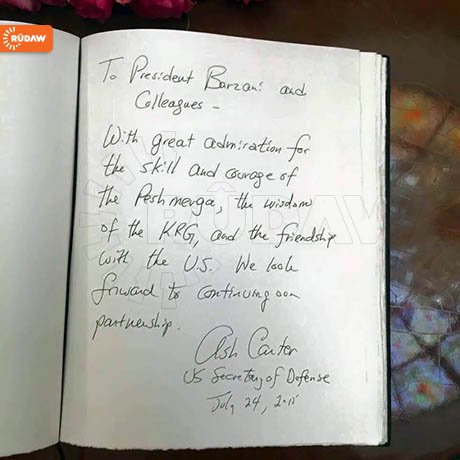 RÛDAW
To President Barzani and
Colleagues -
With great admiration for
the skill and courage of
the Peshmerga, the wisdom
of the KRG, and the friendship
with the U.S. We look
forward to continuing our
partnership.
Ash Carter
US Secretary of Defense
July 24, 2015
RÛDAW